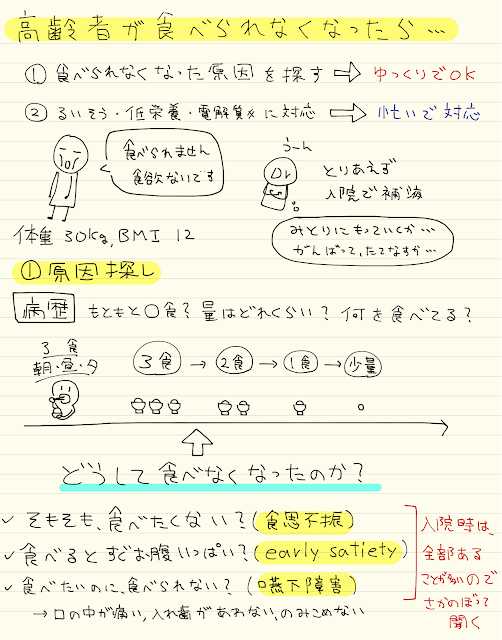 高齢者が食べられなくなったら…
① 食べられなくなった原因を探す ⇨ ゆっくりでOK
② るいそう・低栄養・電解質×に対応 ⇨ 忙いで対応
食べられません
食欲ないです
うーん
Dr
とりあえず
入院で補液
体重30kg, BMI 12
みとりにもっていくか…
がんばって、たてなすか…
① 原因探し
病歴 もともと〇食? 量はどれくらい? 何を食べてる?
3食
朝・昼・夕
3食 → 2食 → 1食 → 少量
どうして食べなくなったのか?
✓ そもそも、食べたくない? (食思不振)
✓ 食べるとすぐお腹いっぱい? (early satiety)
✓ 食べたいのに、食べられない? (嚥下障害)
→ 口の中が痛い, 入れ歯があわない, のみこめない
入院時は、
全部ある
ことが多いので
さかのぼって
聞く